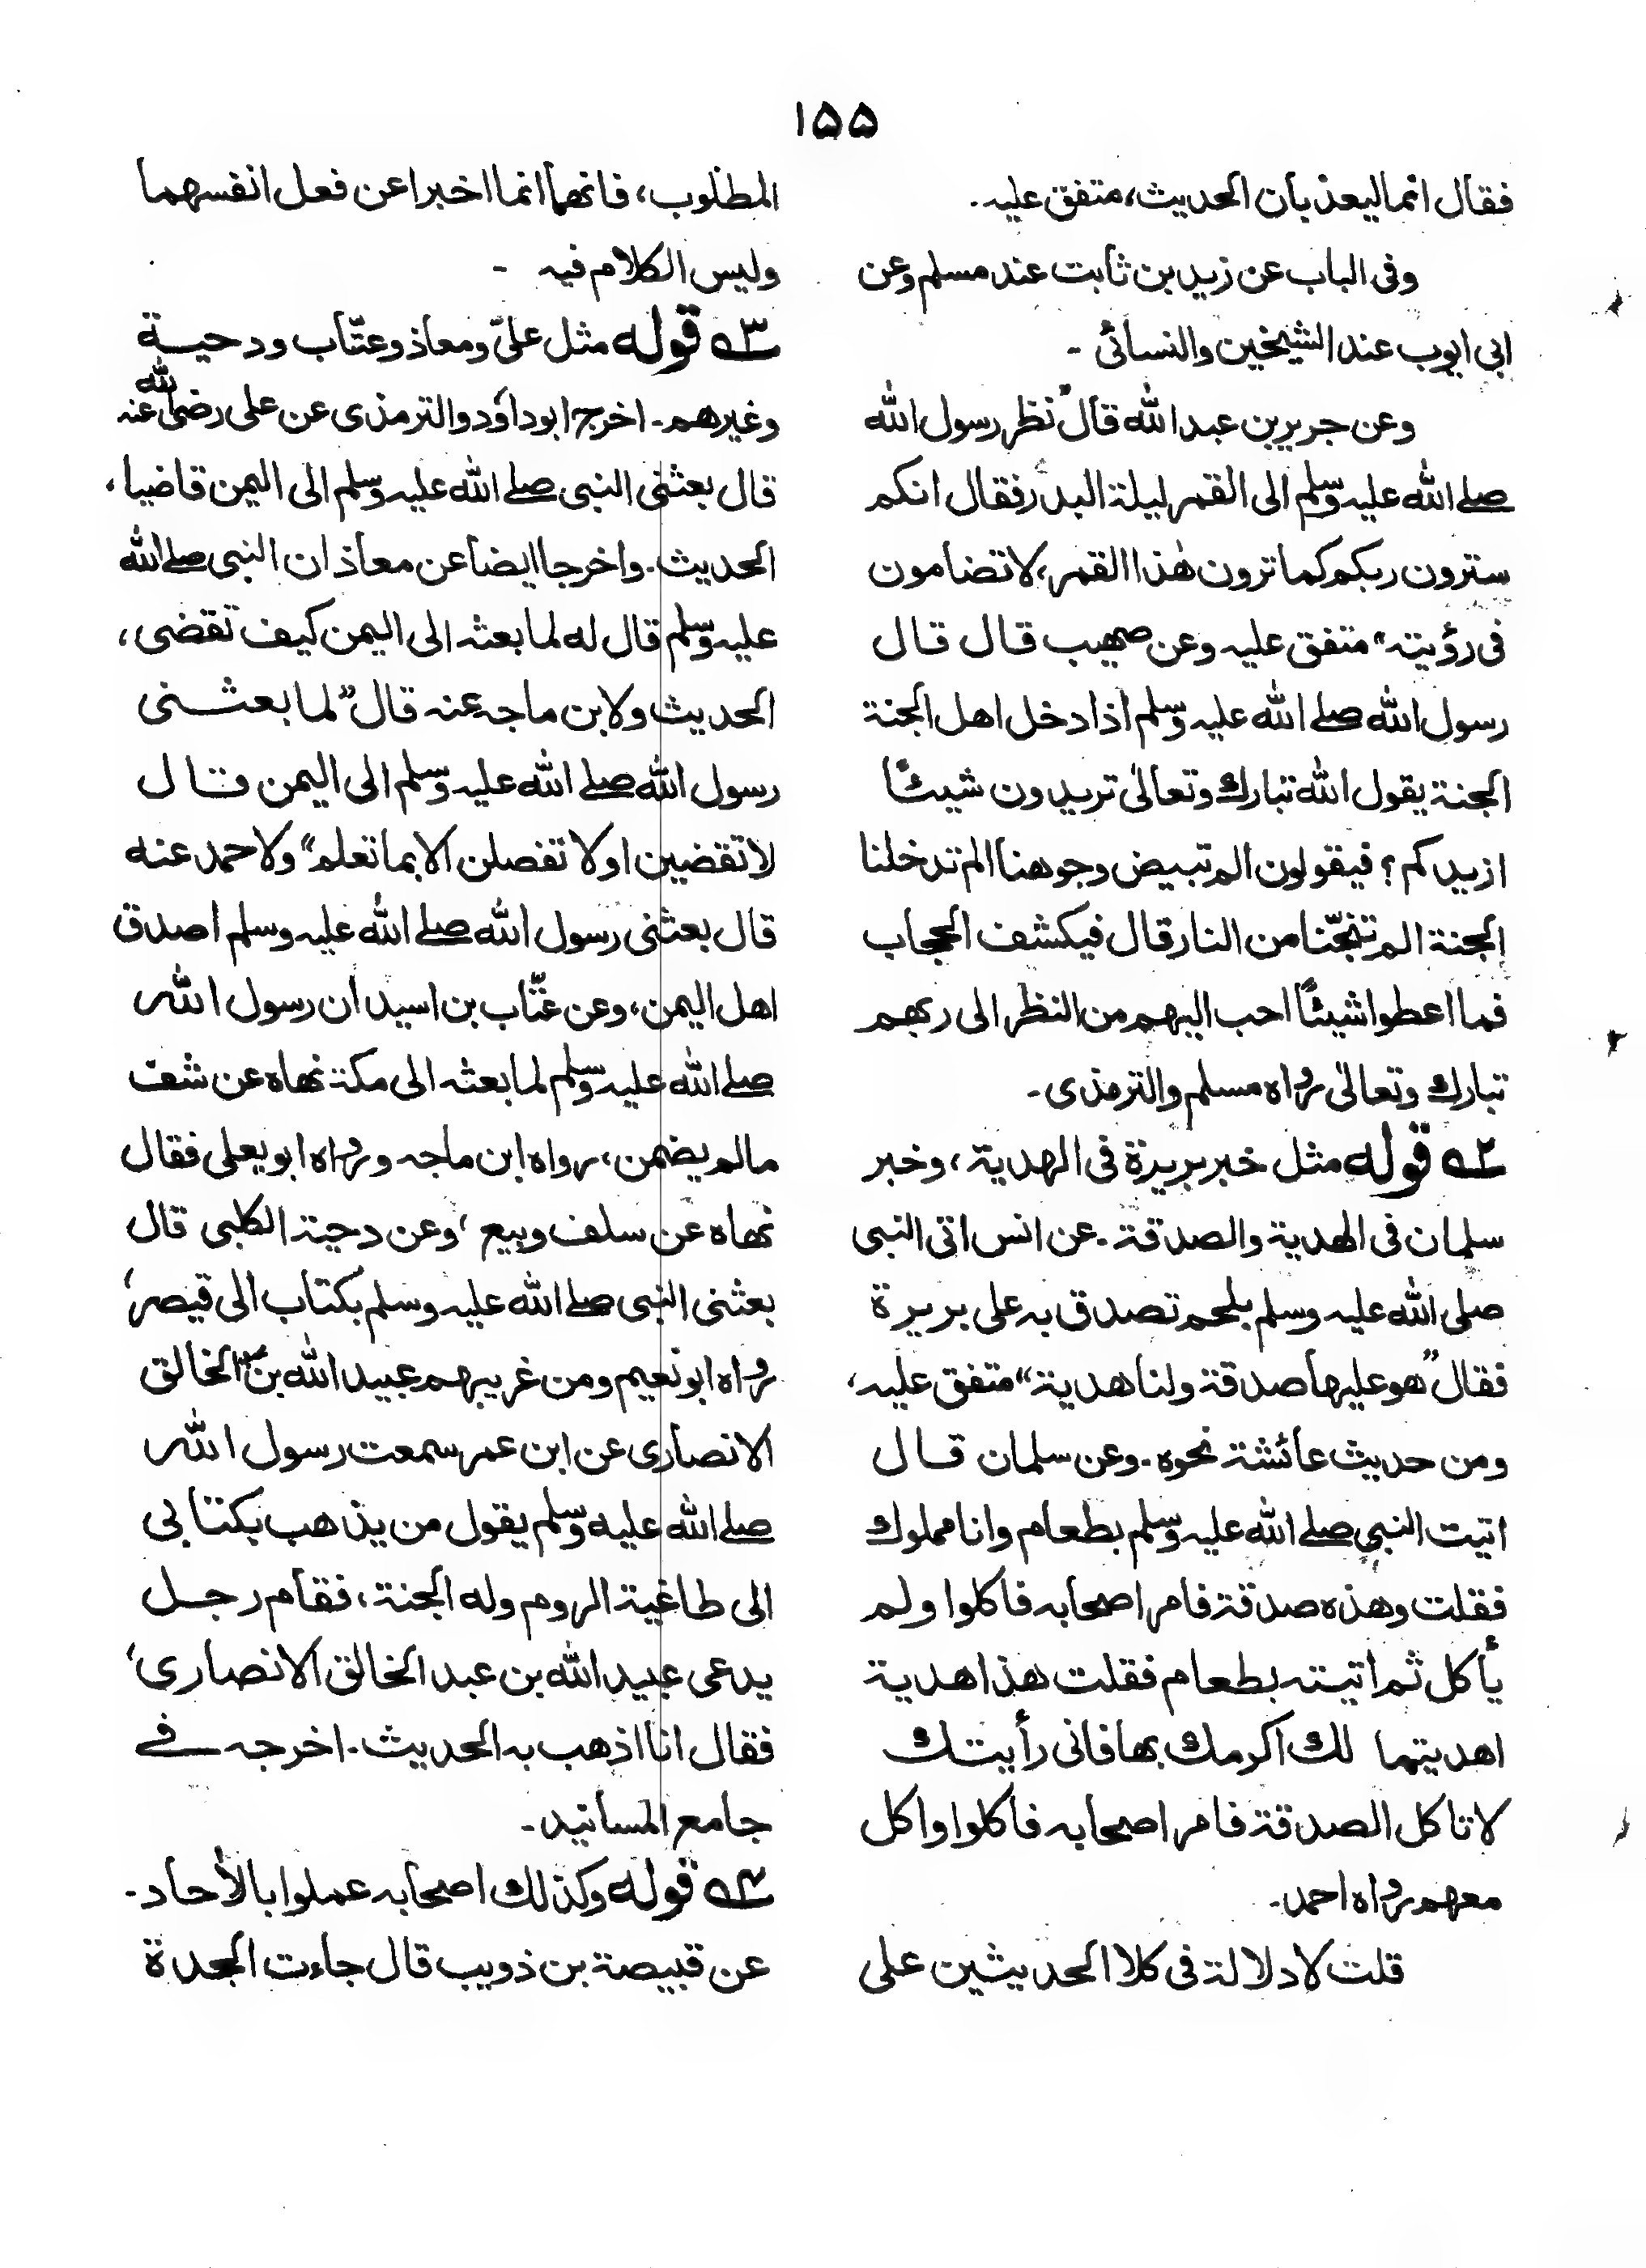 ١٥٥
فقال انما ليعذبان الحديث، متفق عليه.
وفى الباب عن زيد بن ثابت عند مسلم وعن
ابى ايوب عند الشيخين والنسائى -
وعن جرير بن عبد الله قال "نظر رسول الله
صلے الله عليه وسلم الى القمر ليلة البدر فقال انكم
سترون ربكم كما ترون هٰذا القمر، لا تضامون
فى رؤيته" متفق عليه وعن صهيب قال قال
رسول الله صلے الله عليه وسلم اذا دخل اهل الجنة
الجنة يقول الله تبارك وتعالىٰ تريدون شيئًا
ازيدكم؟ فيقولون الم تبيض وجوهنا الم تدخلنا
الجنة الم تنجّنا من النار قال فيكشف الحجاب
فما اعطوا شيئًا احب اليهم من النظر الى ربهم
تبارك وتعالىٰ رواه مسلم والترمذى -
٢ه قوله مثل خبر بريرة فى الهدية، وخبر
سلمان فى الهدية والصدقة. عن انس اتى النبى
صلى الله عليه وسلم بلحم تصدق به على بريرة
فقال "هو عليها صدقة ولنا هدية" متفق عليه،
ومن حديث عائشة نحوه. وعن سلمان قال
اتيت النبى صلے الله عليه وسلم بطعام وانا مملوك
فقلت وهذه صدقة فامر اصحابه فاكلوا ولم
يأكل ثم اتيته بطعام فقلت هذا هدية
اهديتها لك اكرمك بها فانى رأيتك
لا تاكل الصدقة فامر اصحابه فاكلوا واكل
معهم رواه احمد -
قلت لا دلالة فى كلا الحديثين على
المطلوب، فانهما انما اخبرا عن فعل انفسهما
وليس الكلام فيه -
٣ه قوله مثل علىّ ومعاذ وعتّاب ودحية
وغيرهم - اخرج ابوداود والترمذى عن على رضى الله عنه
قال بعثنى النبى صلے الله عليه وسلم الى اليمن قاضيا،
الحديث. واخرجا ايضا عن معاذ ان النبى صلے الله
عليه وسلم قال له لما بعثه الى اليمن كيف تقضى،
الحديث ولابن ماجه عنه قال "لما بعثنى
رسول الله صلے الله عليه وسلم الى اليمن قال
لا تقضين او لا تفصلن الا بما تعلم" ولاحمد عنه
قال بعثنى رسول الله صلے الله عليه وسلم اصدق
اهل اليمن، وعن عتّاب بن اسيد ان رسول الله
صلے الله عليه وسلم لما بعثه الى مكة نهاه عن شف
مالم يضمن، رواه ابن ماجه ورواه ابو يعلى فقال
نهاه عن سلف وبيع، وعن دحية الكلبى قال
بعثنى النبى صلے الله عليه وسلم بكتاب الى قيصر،
رواه ابو نعيم ومن غريبهم عبيد الله بن الخالق
الانصارى عن ابن عمر سمعت رسول الله
صلے الله عليه وسلم يقول من يذهب بكتابى
الى طاغية الروم وله الجنة، فقام رجل
يدعى عبيد الله بن عبد الخالق الانصارى،
فقال انا اذهب به الحديث. اخرجه فے
جامع المسانيد -
٤ه قوله وكذلك اصحابه عملوا بالأحاد -
عن قبيصة بن ذويب قال جاءت الجدة